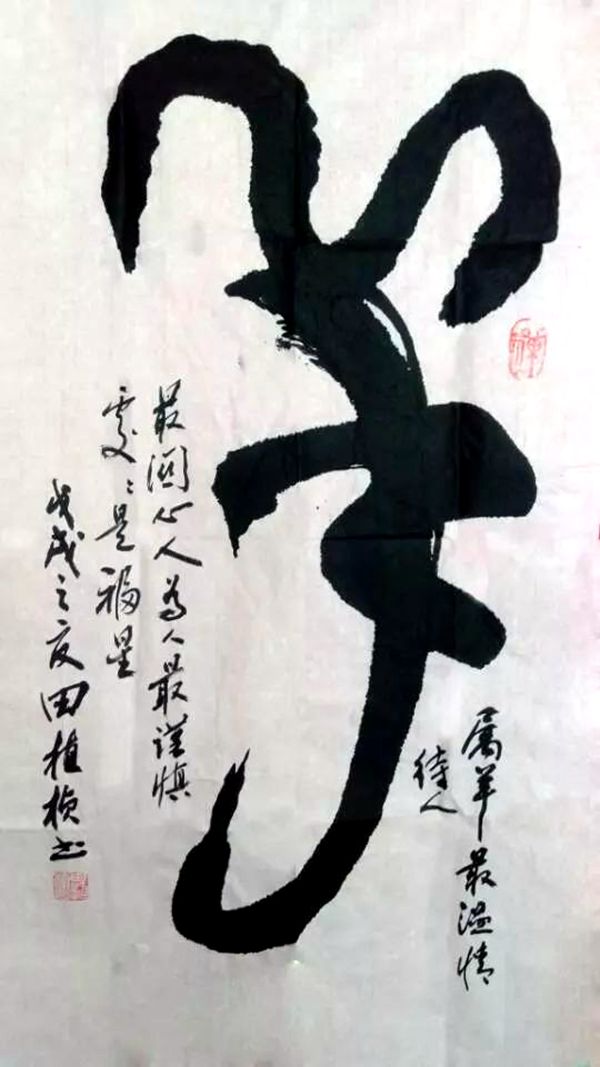 羊
属羊最温情
待人
最関心人為人最謹慎
處〻是福星
戊戌之夏田植桢书